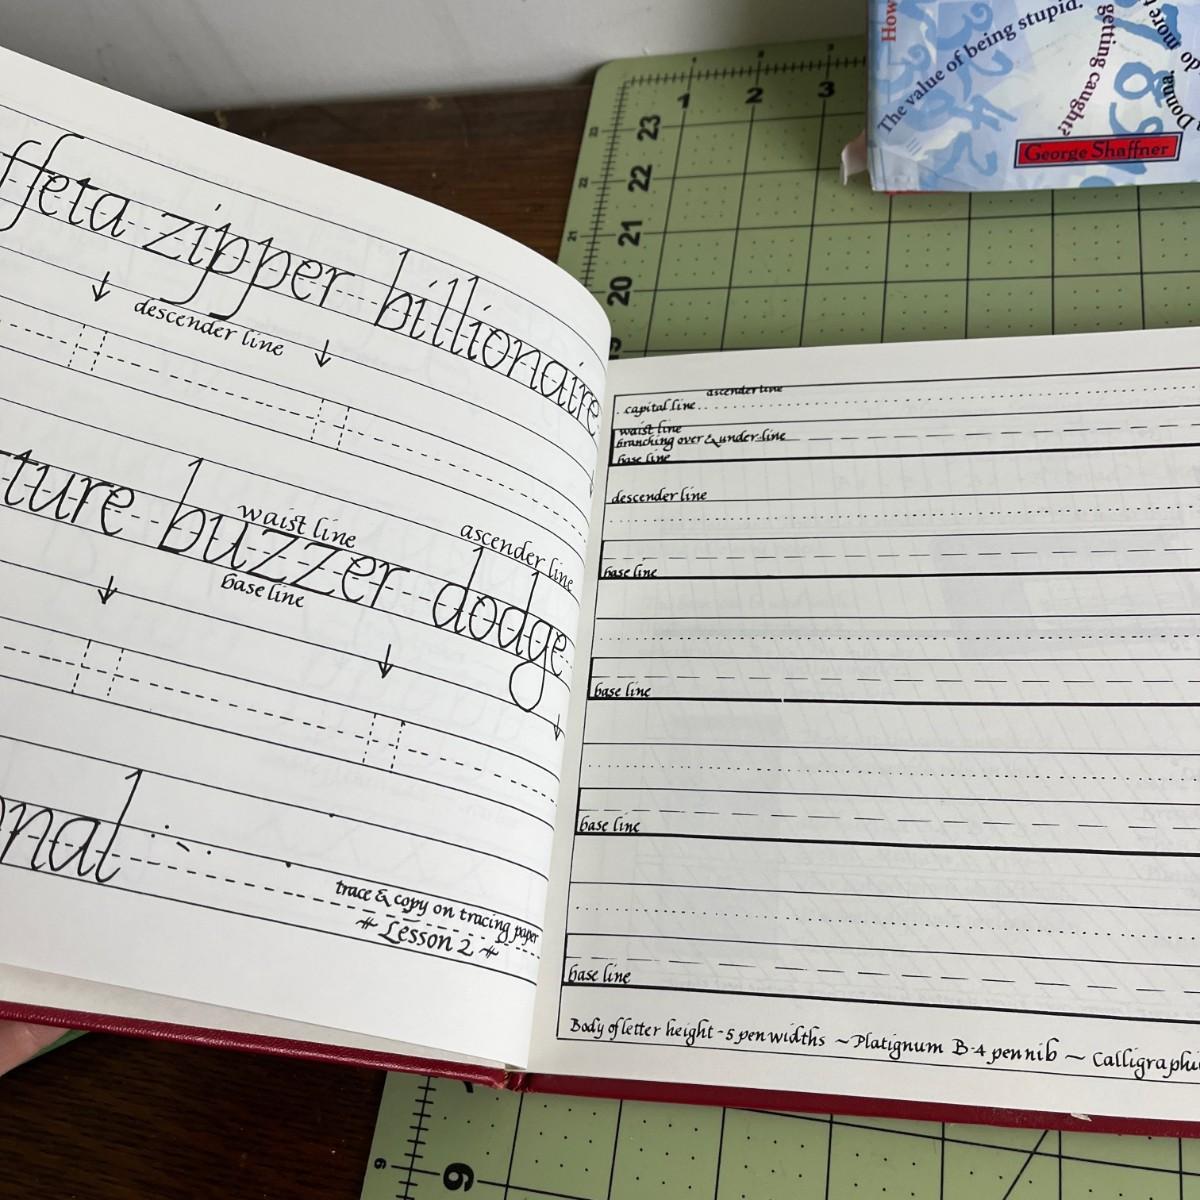 ffeta zipper billionaire
descender line
ture buzzer dodge
waist line
ascender line
base line
onal
trace & copy on tracing paper
Lesson 2
ascender line
capital line
waist line
branching over & under-line
base line
descender line
base line
base line
base line
base line
Body of letter height - 5 pen widths ~ Platignum B-4 pen nib ~ Calligraphi
How
The value of being stupid.
getting caught?
do more t
Donna,
George Shaffner
1 2 3
23
22
21
20
23
22
21
6
6